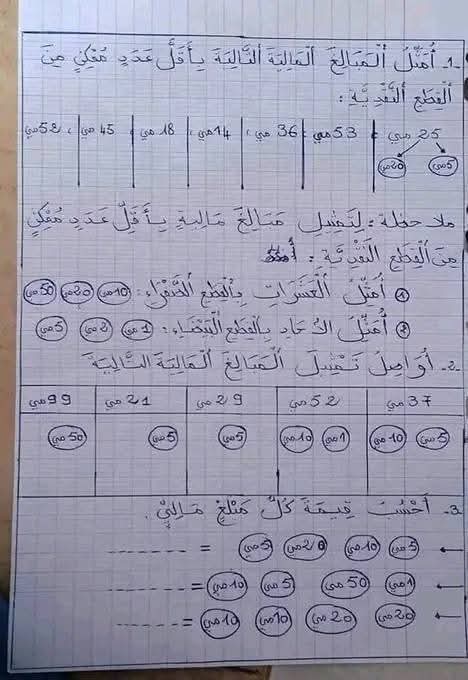 1- أُمَثِّلُ الْمَبَالِغَ الْمَالِيَّةَ التَّالِيَةَ بِأَقَلِّ عَدَدٍ مُمْكِنٍ مِنَ
الْقِطَعِ النَّقْدِيَّةِ :
25 مي ، 53 مي ، 36 مي ، 14 مي ، 18 مي ، 45 مي ، 52 مي
5 مي 20 مي
ملاحظة : لِتَمْثِيلِ مَبَالِغَ مَالِيَةٍ بِأَقَلِّ عَدَدٍ مُمْكِنٍ
مِنَ الْقِطَعِ النَّقْدِيَّةِ :
1 أُمَثِّلُ الْعَشَرَاتِ بِالْقِطَعِ الصَّفْرَاءِ : 10 مي 20 مي 50 مي
2 أُمَثِّلُ الآحَادِ بِالْقِطَعِ الْبَيْضَاءِ : 1 مي 2 مي 5 مي
2- أُوَاصِلُ تَمْثِيلَ الْمَبَالِغِ الْمَالِيَّةِ التَّالِيَةِ
37 مي 52 مي 29 مي 21 مي 99 مي
5 مي 10 مي 1 مي 10 مي 5 مي 5 مي 50 مي
3- أَحْسُبُ قِيمَةَ كُلِّ مَبْلَغٍ مَالِيٍّ .
5 مي 10 مي 20 مي 5 مي = --------
1 مي 50 مي 5 مي 10 مي = --------
20 مي 20 مي 10 مي 10 مي = --------